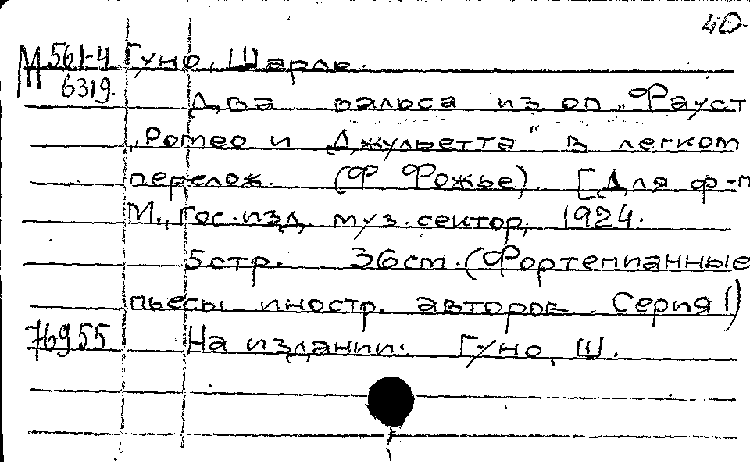 40-
М 561-4 Гуно, Шарль.
6319.
Два вальса из оп. „Фауст
„Ромео и Джульетта" в легком
перелож. (Ф Фожье). [Для ф-п
М., Гос. изд. муз. сектор, 1924.
5стр. 36cm. (Фортепианные
пьесы иностр. авторов. Серия I)
76955 На издании: Гуно, Ш.